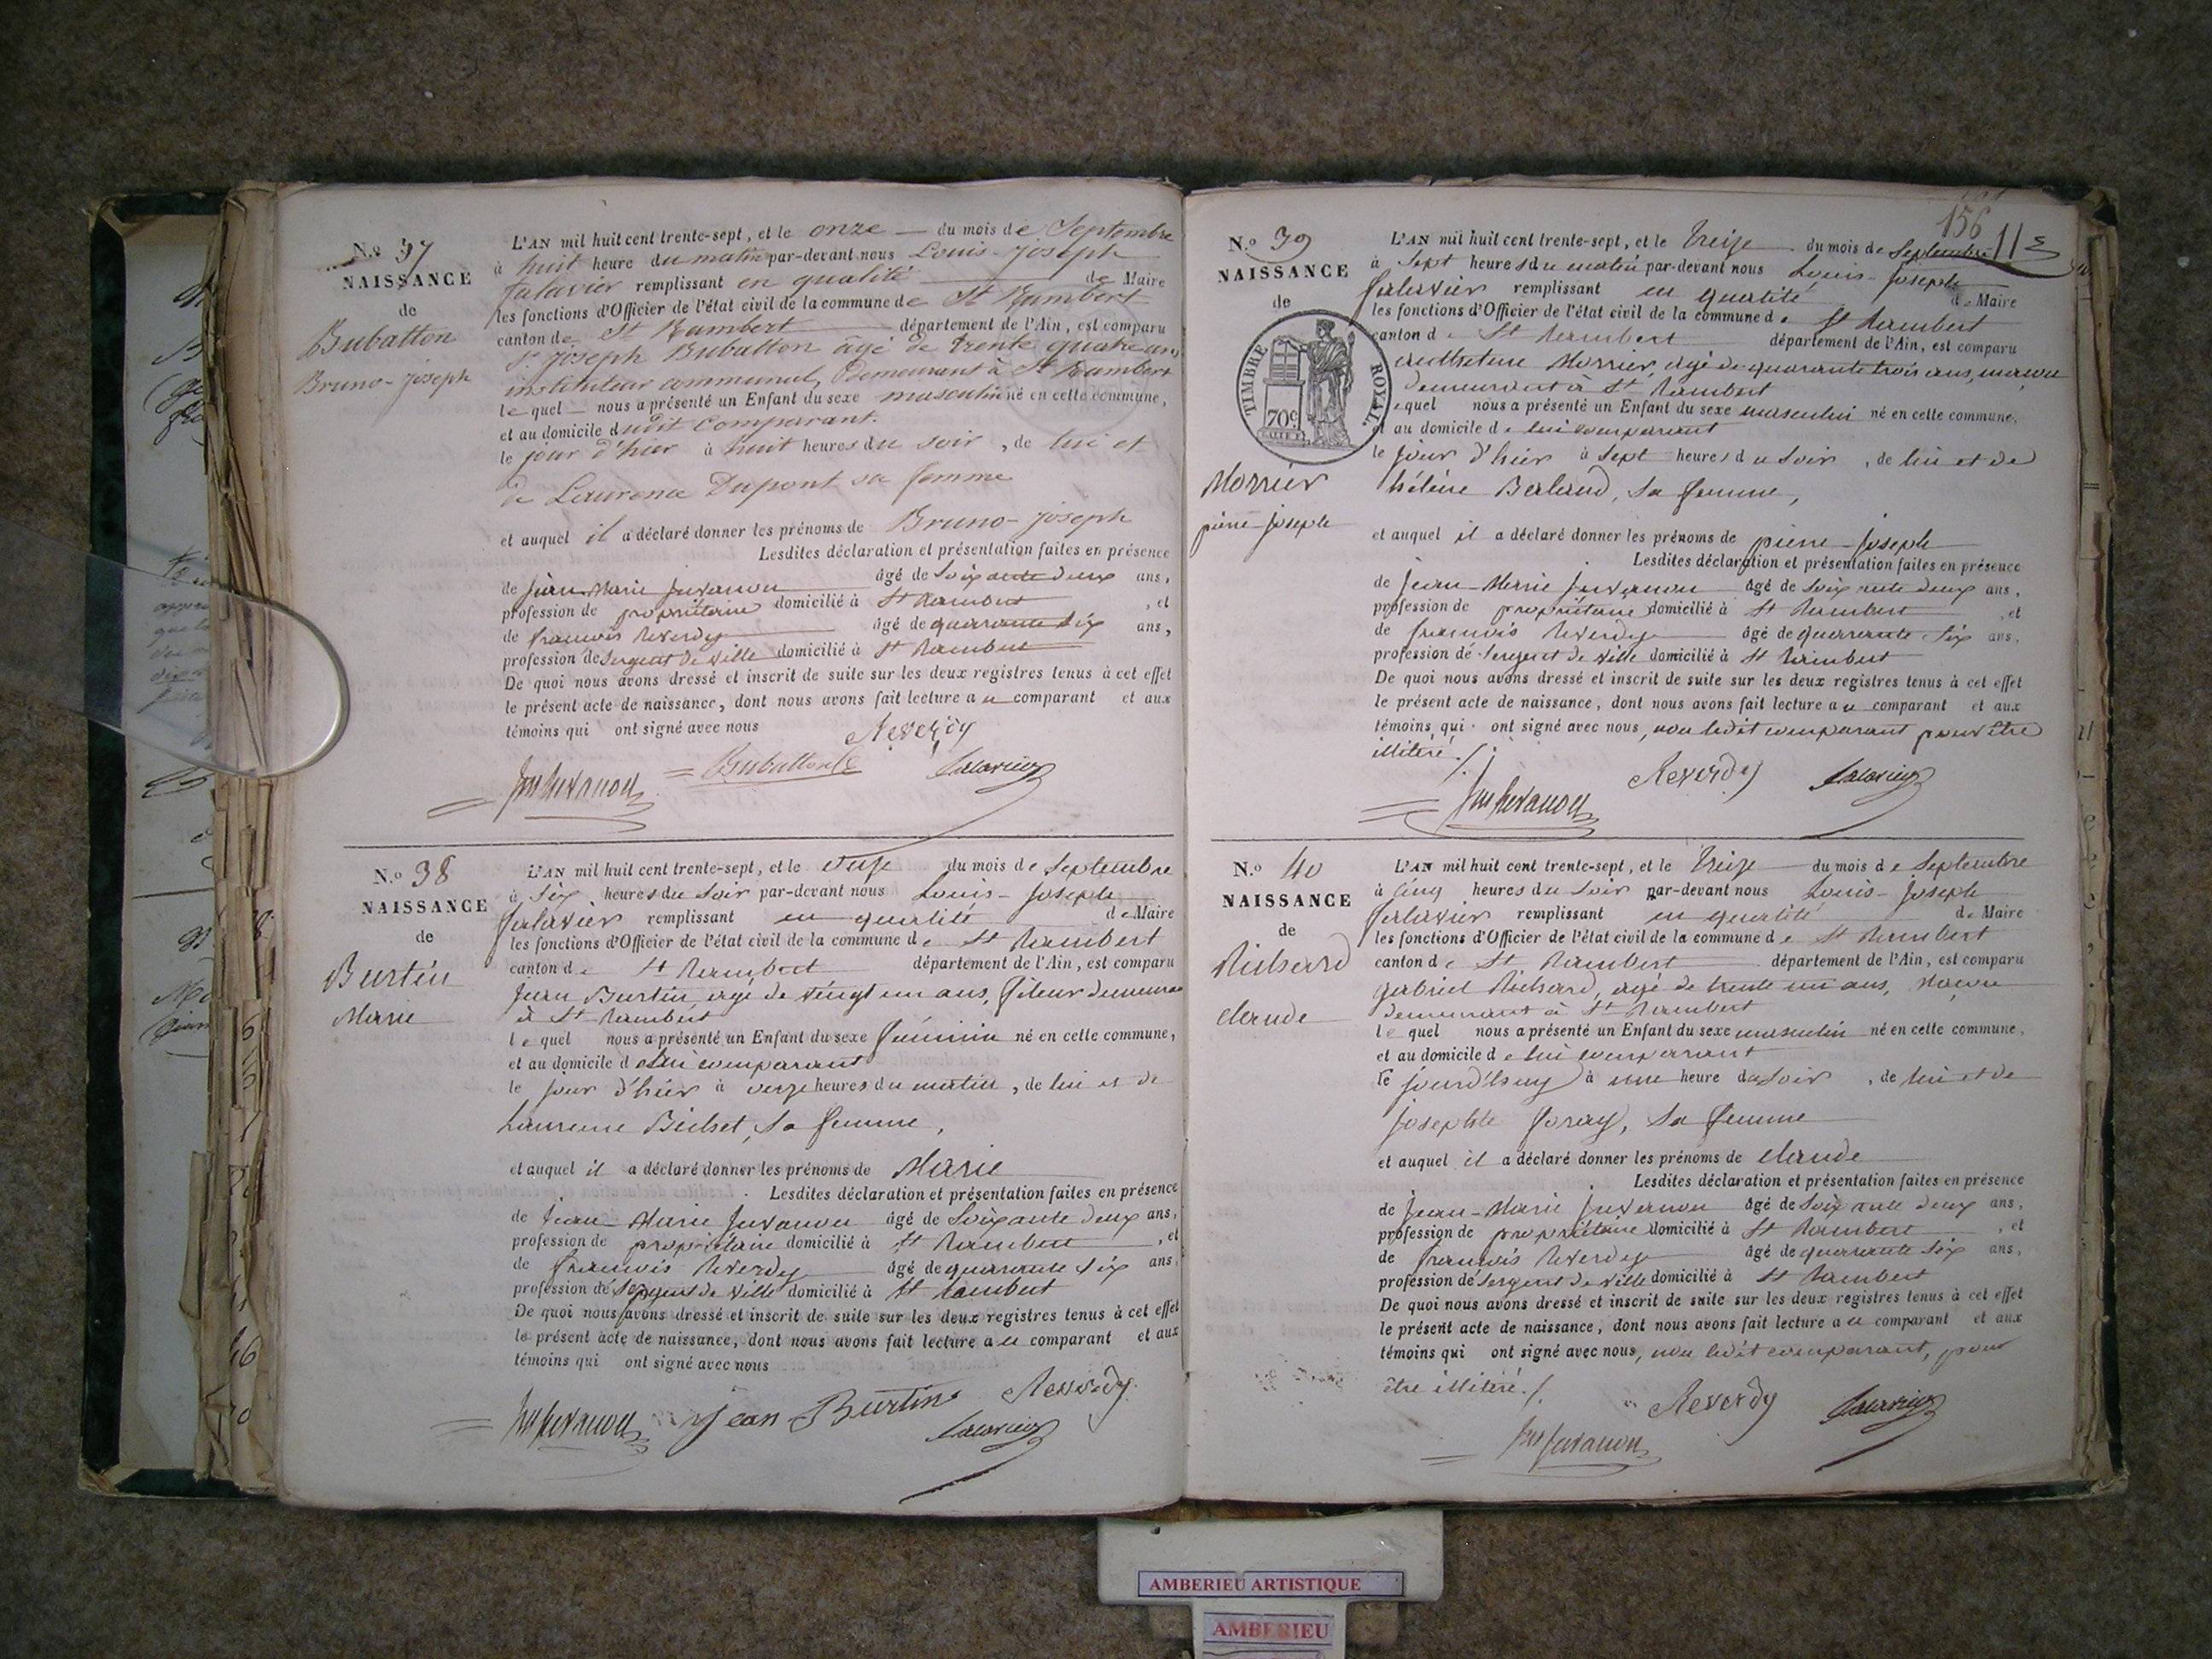 N.o 37
NAISSANCE
de
Bubatton
Bruno-Joseph
L'AN mil huit cent trente-sept, et le onze du mois de Septembre
à huit heure du matin par-devant nous Louis-Joseph
Falavier remplissant en qualité de Maire
les fonctions d'Officier de l'état civil de la commune de St Rambert
canton de St Rambert département de l'Ain, est comparu
Sr Joseph Bubatton âgé de trente quatre ans
instituteur communal, demeurant à St Rambert
le quel nous a présenté un Enfant du sexe masculin né en cette commune,
et au domicile dudit comparant.
le jour d'hier à huit heures du soir, de lui et
de Laurence Dupont sa femme
et auquel il a déclaré donner les prénoms de Bruno-Joseph
Lesdites déclaration et présentation faites en présence
de Jean-Marie Juvanon âgé de soixante deux ans,
profession de propriétaire domicilié à St Rambert, et
de françois Reverdy âgé de quarante six ans,
profession de Sergent de ville domicilié à St Rambert
De quoi nous avons dressé et inscrit de suite sur les deux registres tenus à cet effet
le présent acte de naissance, dont nous avons fait lecture au comparant et aux
témoins qui ont signé avec nous
Reverdy
Bubatton
Juvanon
N.o 38
NAISSANCE
de
Burtin
Marie
L'AN mil huit cent trente-sept, et le onze du mois de Septembre
à Six heures du Soir par-devant nous Louis-Joseph
Falavier remplissant en qualité de Maire
les fonctions d'Officier de l'état civil de la commune de St Rambert
canton de St Rambert département de l'Ain, est comparu
Jean Burtin, agé de vingt un ans, fileur
à St Rambert
le quel nous a présenté un Enfant du sexe féminin né en cette commune,
et au domicile de lui comparant
le jour d'hier à onze heures du matin, de lui et de
Laurence sa femme,
et auquel il a déclaré donner les prénoms de Marie
Lesdites déclaration et présentation faites en présence
de Jean-Marie Juvanon âgé de Soixante deux ans,
profession de propriétaire domicilié à St Rambert, et
de françois Reverdy âgé de quarante six ans,
profession de Sergent de ville domicilié à St Rambert
De quoi nous avons dressé et inscrit de suite sur les deux registres tenus à cet effet
le présent acte de naissance, dont nous avons fait lecture au comparant et aux
témoins qui ont signé avec nous
Juvanon jean Burtin Reverdy
156
N.o 39
NAISSANCE
de
TIMBRE ROYAL
70c
Morrier
pierre-Joseph
L'AN mil huit cent trente-sept, et le treize du mois de Septembre
à Sept heures du matin par-devant nous Louis-Joseph
Falavier remplissant en qualité de Maire
les fonctions d'Officier de l'état civil de la commune de St Rambert
canton de St Rambert département de l'Ain, est comparu
Anthelme Morrier, agé de quarante trois ans, maçon
demeurant à St Rambert
lequel nous a présenté un Enfant du sexe masculin né en cette commune,
et au domicile de lui comparant
le jour d'hier à Sept heures du Soir, de lui et de
hélène sa femme,
et auquel il a déclaré donner les prénoms de pierre-Joseph
Lesdites déclaration et présentation faites en présence
de Jean-Marie Juvanon âgé de Soixante deux ans,
profession de propriétaire domicilié à St Rambert, et
de françois Reverdy âgé de quarante Six ans,
profession de Sergent de ville domicilié à St Rambert
De quoi nous avons dressé et inscrit de suite sur les deux registres tenus à cet effet
le présent acte de naissance, dont nous avons fait lecture au comparant et aux
témoins qui ont signé avec nous, non ledit comparant pour être
illitéré.
Reverdy
Juvanon
N.o 40
NAISSANCE
de
Richard
Claude
L'AN mil huit cent trente-sept, et le treize du mois de Septembre
à Cinq heures du Soir par-devant nous Louis-Joseph
Falavier remplissant en qualité de Maire
les fonctions d'Officier de l'état civil de la commune de St Rambert
canton de St Rambert département de l'Ain, est comparu
gabriel Richard, agé de trente un ans, Maçon
demeurant à St Rambert
le quel nous a présenté un Enfant du sexe masculin né en cette commune,
et au domicile de lui comparant
le jourd'huy à une heure du Soir, de lui et de
Josephte foray, Sa femme
et auquel il a déclaré donner les prénoms de Claude
Lesdites déclaration et présentation faites en présence
de Jean-Marie Juvanon âgé de Soixante deux ans,
profession de propriétaire domicilié à St Rambert, et
de françois Reverdy âgé de quarante Six ans,
profession de Sergent de ville domicilié à St Rambert
De quoi nous avons dressé et inscrit de suite sur les deux registres tenus à cet effet
le présent acte de naissance, dont nous avons fait lecture au comparant et aux
témoins qui ont signé avec nous, non ledit comparant, pour
être illitéré.
Reverdy
Juvanon
AMBERIEU ARTISTIQUE
AMBERIEU